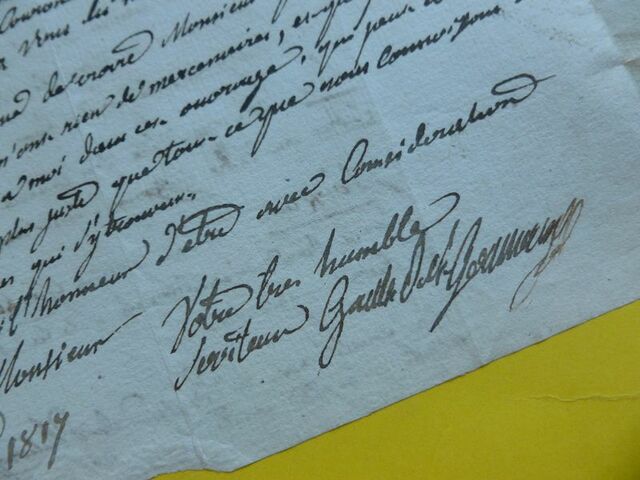 vous les
de croire Monsieur
n'ont rien de mercenaires, et
a moi dans ces ouvrage, qui peut
plus juste que tout ce que nous
qui s'y trouveur.
l'honneur d'être avec Consideration
Monsieur Votre tres humble
serviteur Gault de St Germain
1817